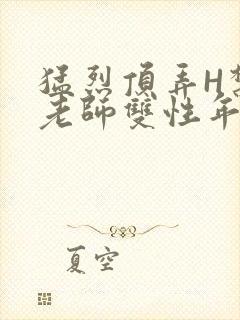 猛烈頂弄H
老師雙性年
夏空